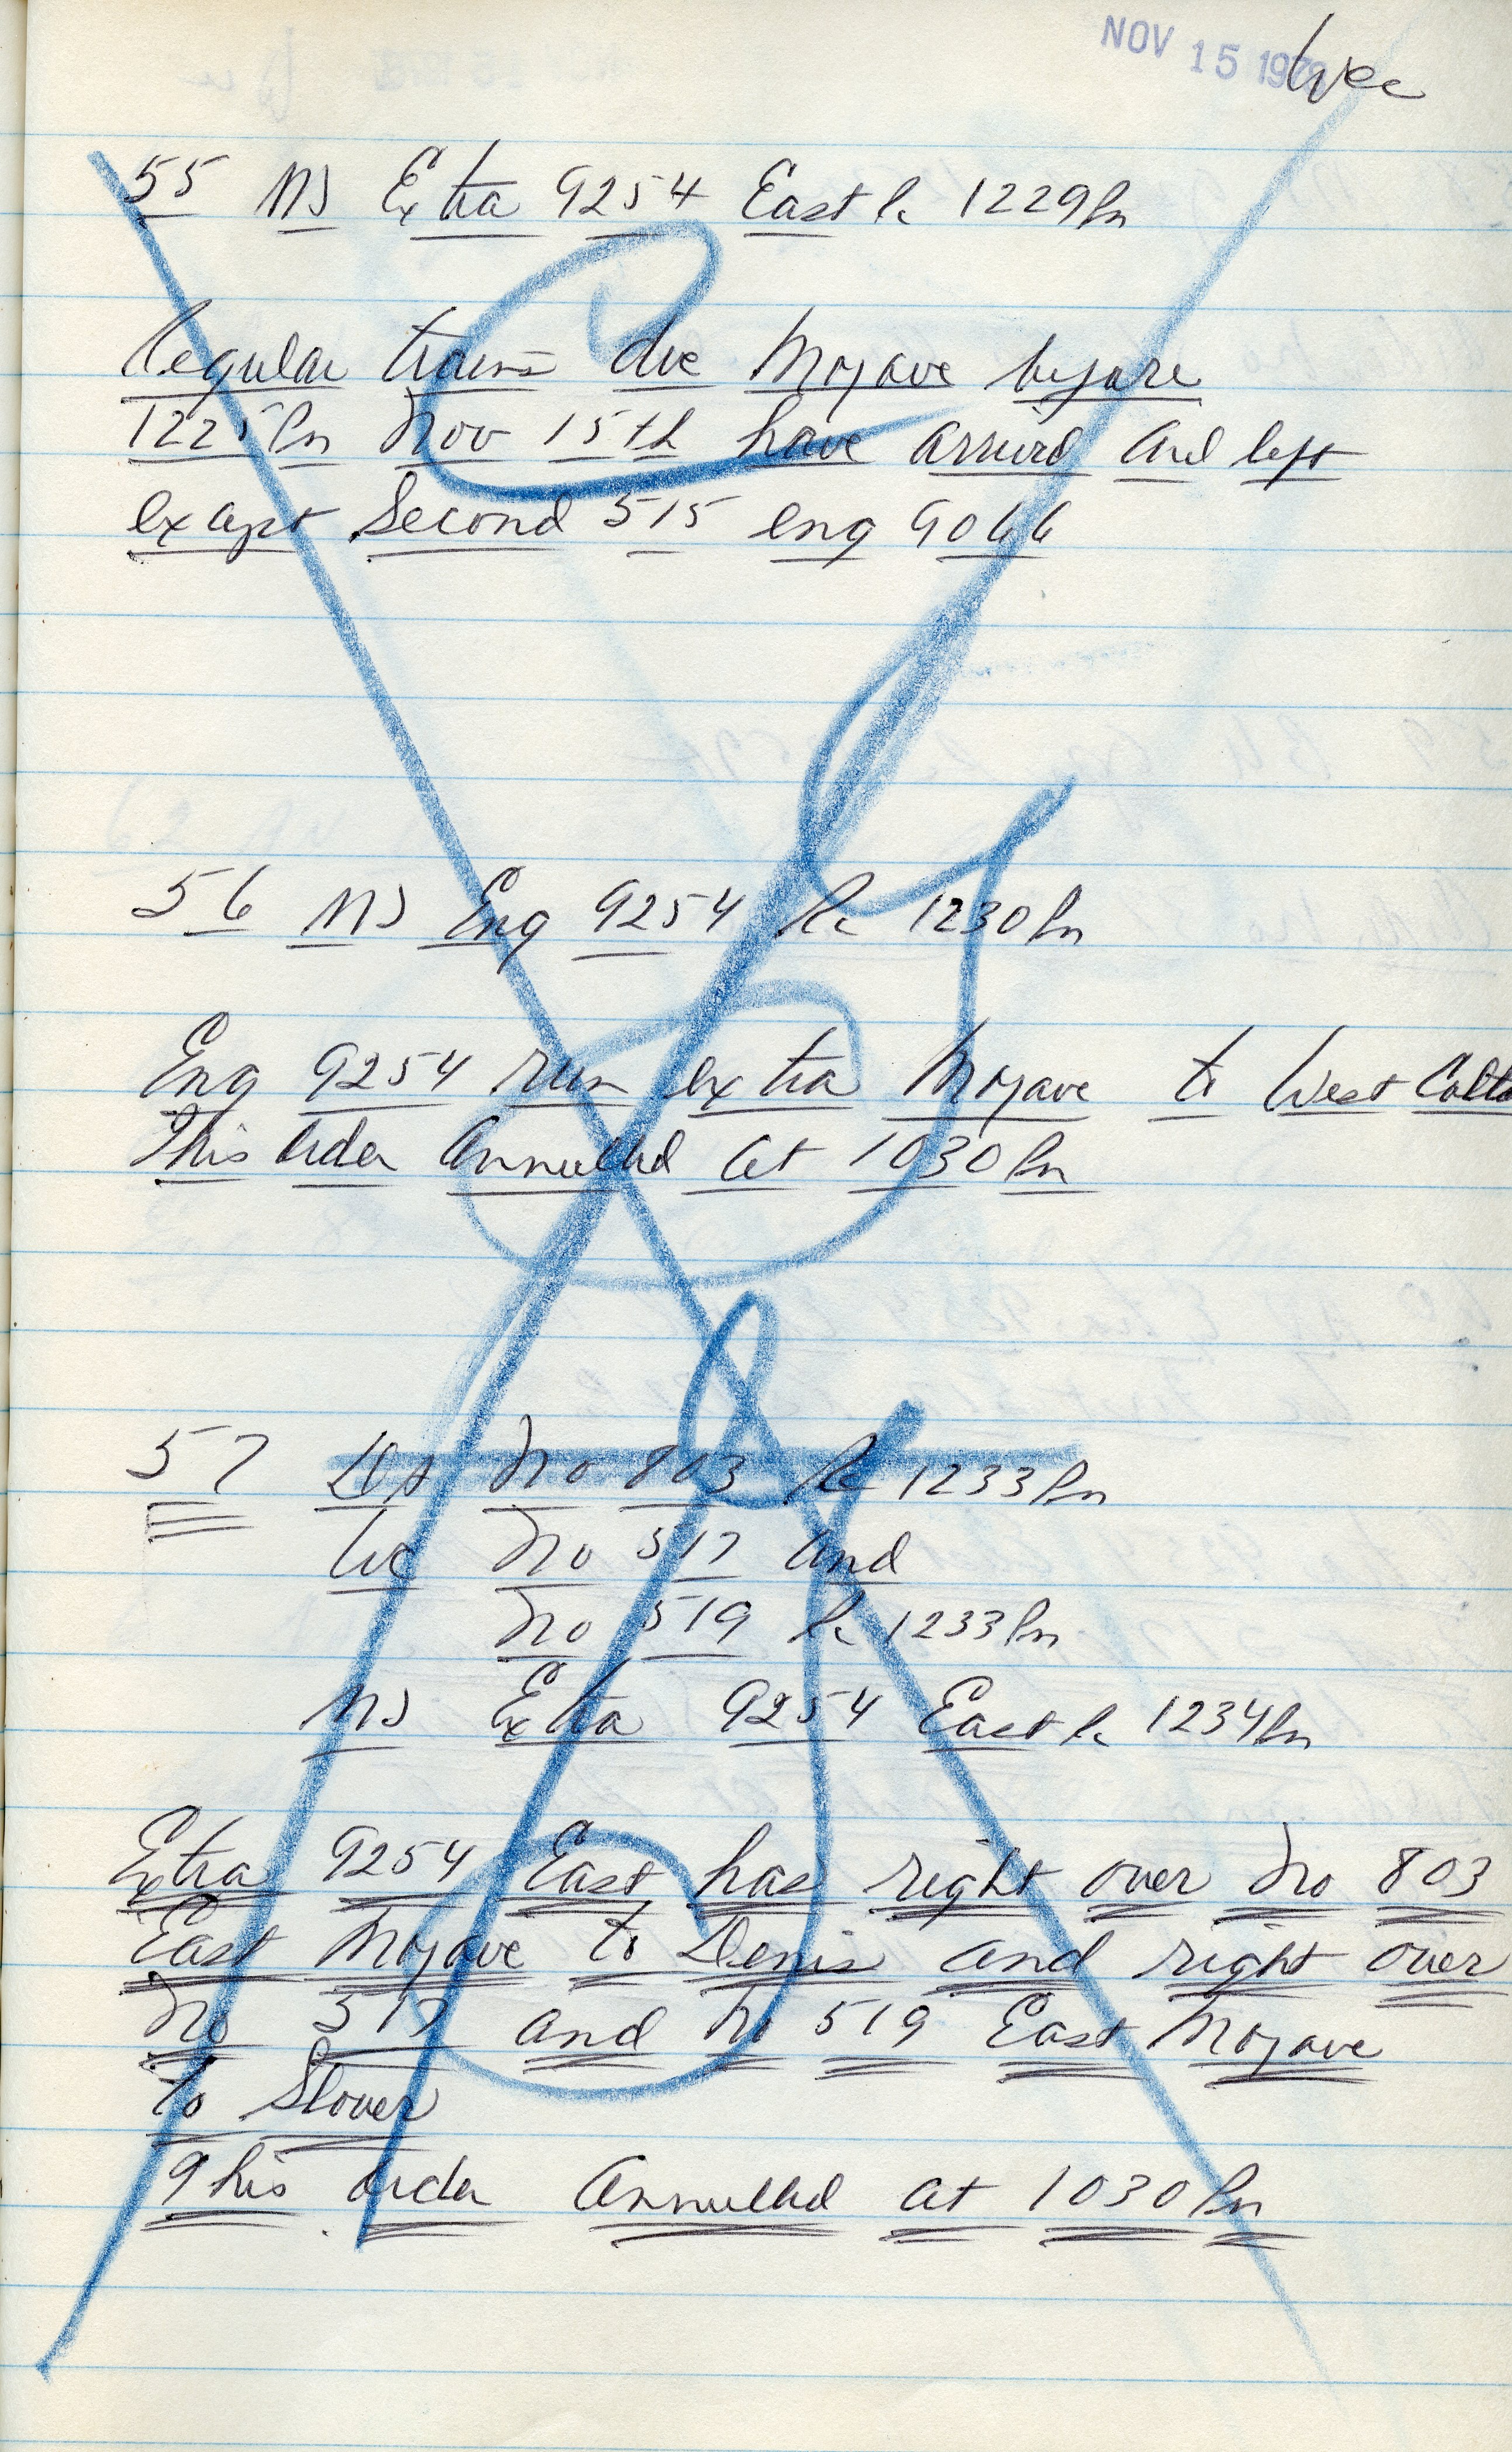 NOV 15 197
55 MJ Extra 9254 East Rc 1229Pm
Regular trains due Mojave before
1225Pm Nov 15th have arrived and left
except Second 515 eng 9066
56 MJ Eng 9254 Rc 1230Pm
Eng 9254 run extra Mojave to West Colto
This order annulled at 1030Pm
57 No 803 Rc 1233Pm
No 517 and
No 519 Rc 1233Pm
MJ Extra 9254 East Rc 1234Pm
Extra 9254 East has right over No 803
East Mojave to Denis and right over
No 517 and No 519 East Mojave
to Slover
This order annulled at 1030Pm